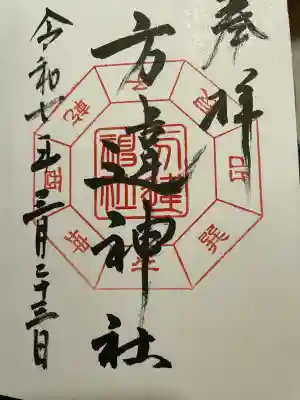 奉拝
方違神社
令和七年三月二十三日
方違
神社
艮
巽
坤
酉
乾